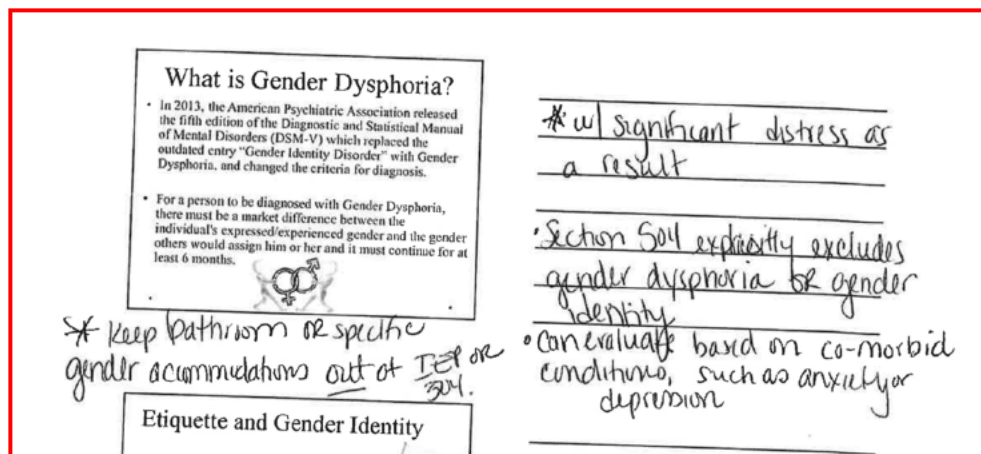 What is Gender Dysphoria?
• In 2013, the American Psychiatric Association released
the fifth edition of the Diagnostic and Statistical Manual
of Mental Disorders (DSM-V) which replaced the
outdated entry "Gender Identity Disorder" with Gender
Dysphoria, and changed the criteria for diagnosis.
• For a person to be diagnosed with Gender Dysphoria,
there must be a market difference between the
individual's expressed/experienced gender and the gender
others would assign him or her and it must continue for at
least 6 months.
* Keep bathroom OR specific
gender acummodations out of IEP OR
504.
Etiquette and Gender Identity
* w/ significant distress as
a result
• Section 504 explicitly excludes
gender dysphoria OR gender
identity
• Can evaluate based on co-morbid
conditions, such as anxiety or
depression